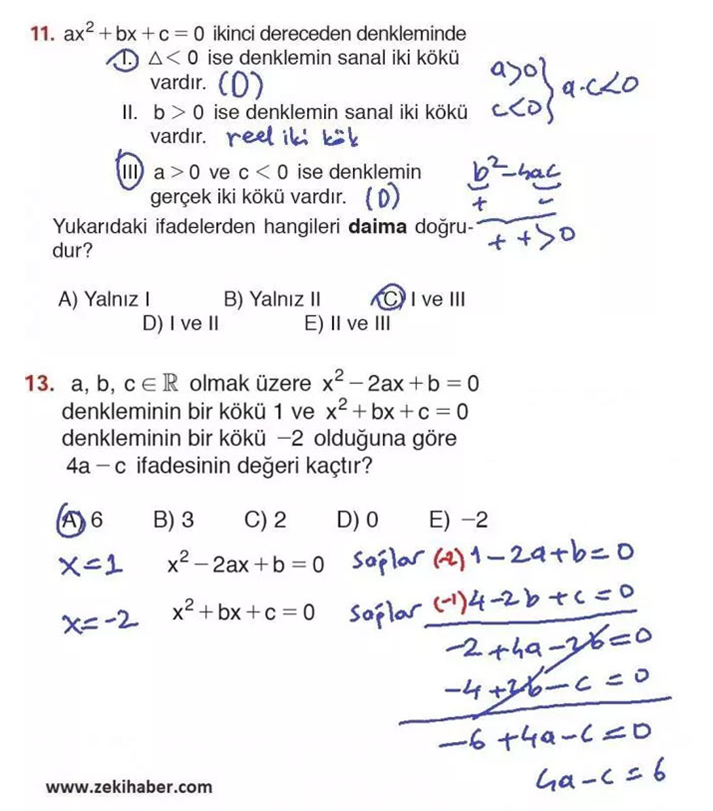 11. ax² + bx + c = 0 ikinci dereceden denkleminde
I. △ < 0 ise denklemin sanal iki kökü
vardır. (D)
II. b > 0 ise denklemin sanal iki kökü
vardır. reel iki kök
III a > 0 ve c < 0 ise denklemin
gerçek iki kökü vardır. (D)
a>0
c<0
a.c<0
b²-4ac
+ -
+ + >0
Yukarıdaki ifadelerden hangileri daima doğru-
dur?
A) Yalnız I B) Yalnız II C) I ve III
D) I ve II E) II ve III
13. a, b, c ∈ ℝ olmak üzere x² – 2ax + b = 0
denkleminin bir kökü 1 ve x² + bx + c = 0
denkleminin bir kökü –2 olduğuna göre
4a – c ifadesinin değeri kaçtır?
A) 6 B) 3 C) 2 D) 0 E) –2
x=1 x² – 2ax + b = 0 sağlar (-2) 1-2a+b=0
x=-2 x² + bx + c = 0 sağlar (-1) 4-2b+c=0
-2+4a-2b=0
-4+2b-c=0
-6+4a-c=0
4a-c=6
www.zekihaber.com